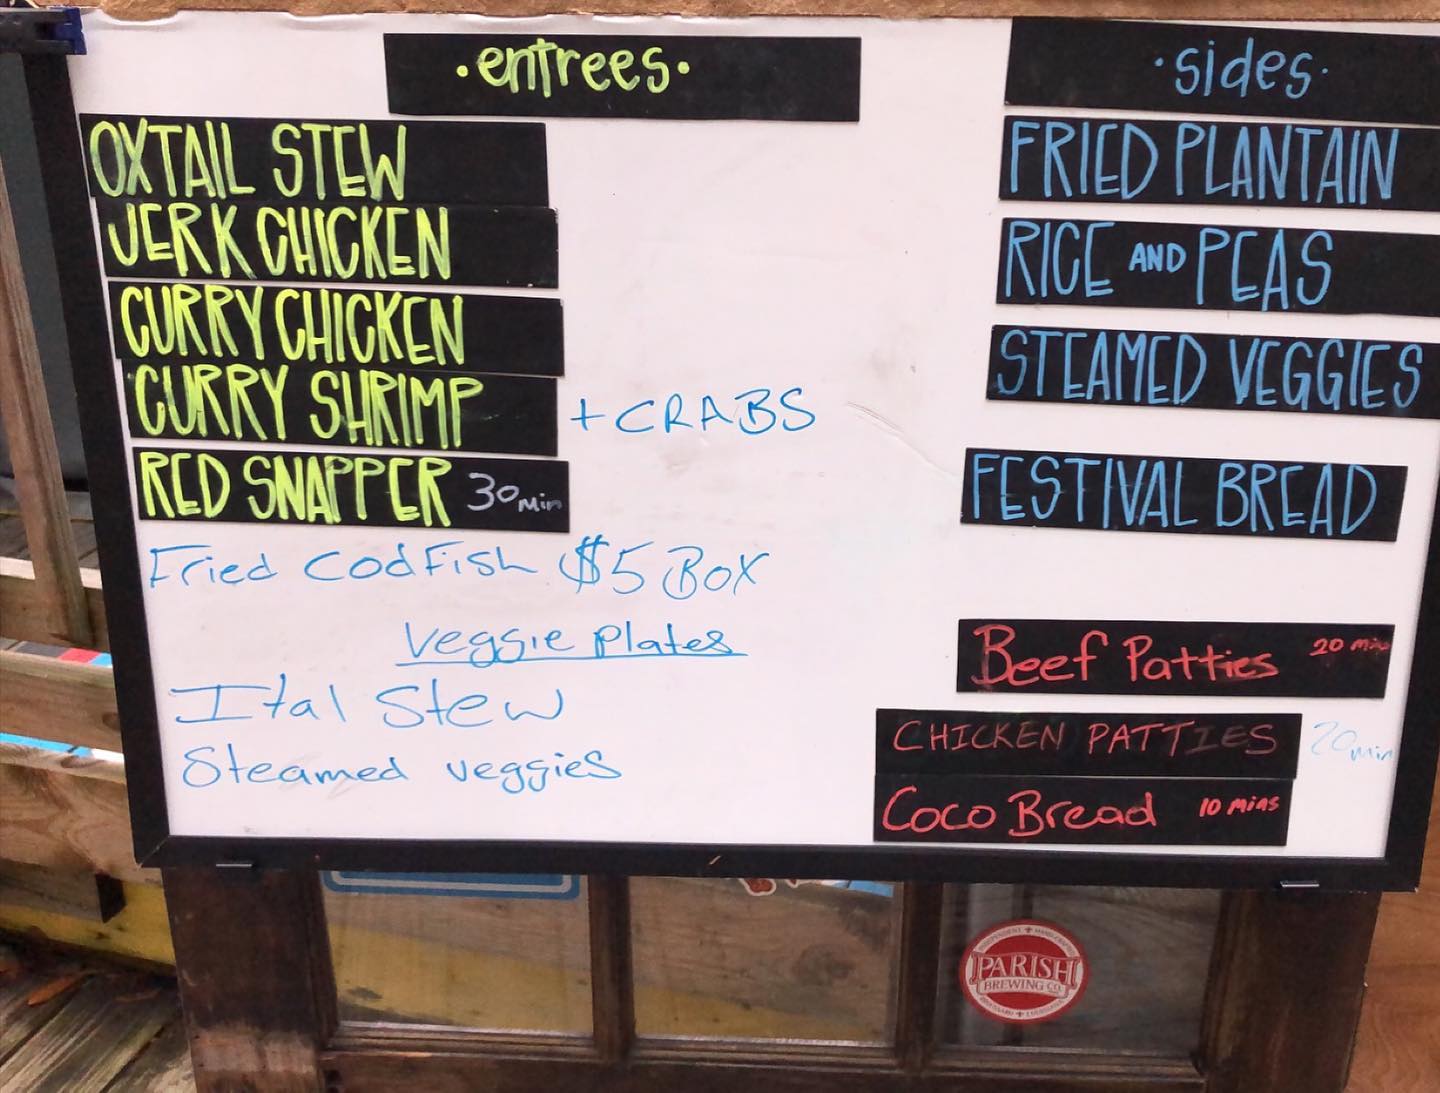 ·entrees·
OXTAIL STEW
JERK CHICKEN
CURRY CHICKEN
CURRY SHRIMP + CRABS
RED SNAPPER 30 Min
Fried CodFish $5 Box
Veggie Plates
Ital Stew
Steamed veggies
·sides·
FRIED PLANTAIN
RICE AND PEAS
STEAMED VEGGIES
FESTIVAL BREAD
Beef Patties 20 min
CHICKEN PATTIES 20 min
Coco Bread 10 mins
INDEPENDENT HAND-CRAFTED
PARISH
BREWING CO.
BROUSSARD LOUISIANA